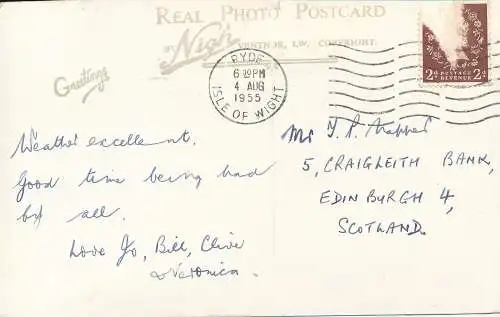 REAL PHOTO POSTCARD
BY Nigh VENTNOR, I.W, COPYRIGHT
Greetings
RYDE
6 PM
4 AUG
1955
ISLE OF WIGHT
2D POSTAGE REVENUE 2D
Weather excellent.
Good time being had
by all.
Love Jo, Bill, Clive
& Veronica.
Mr
5, CRAIGLEITH BANK,
EDINBURGH 4,
SCOTLAND.